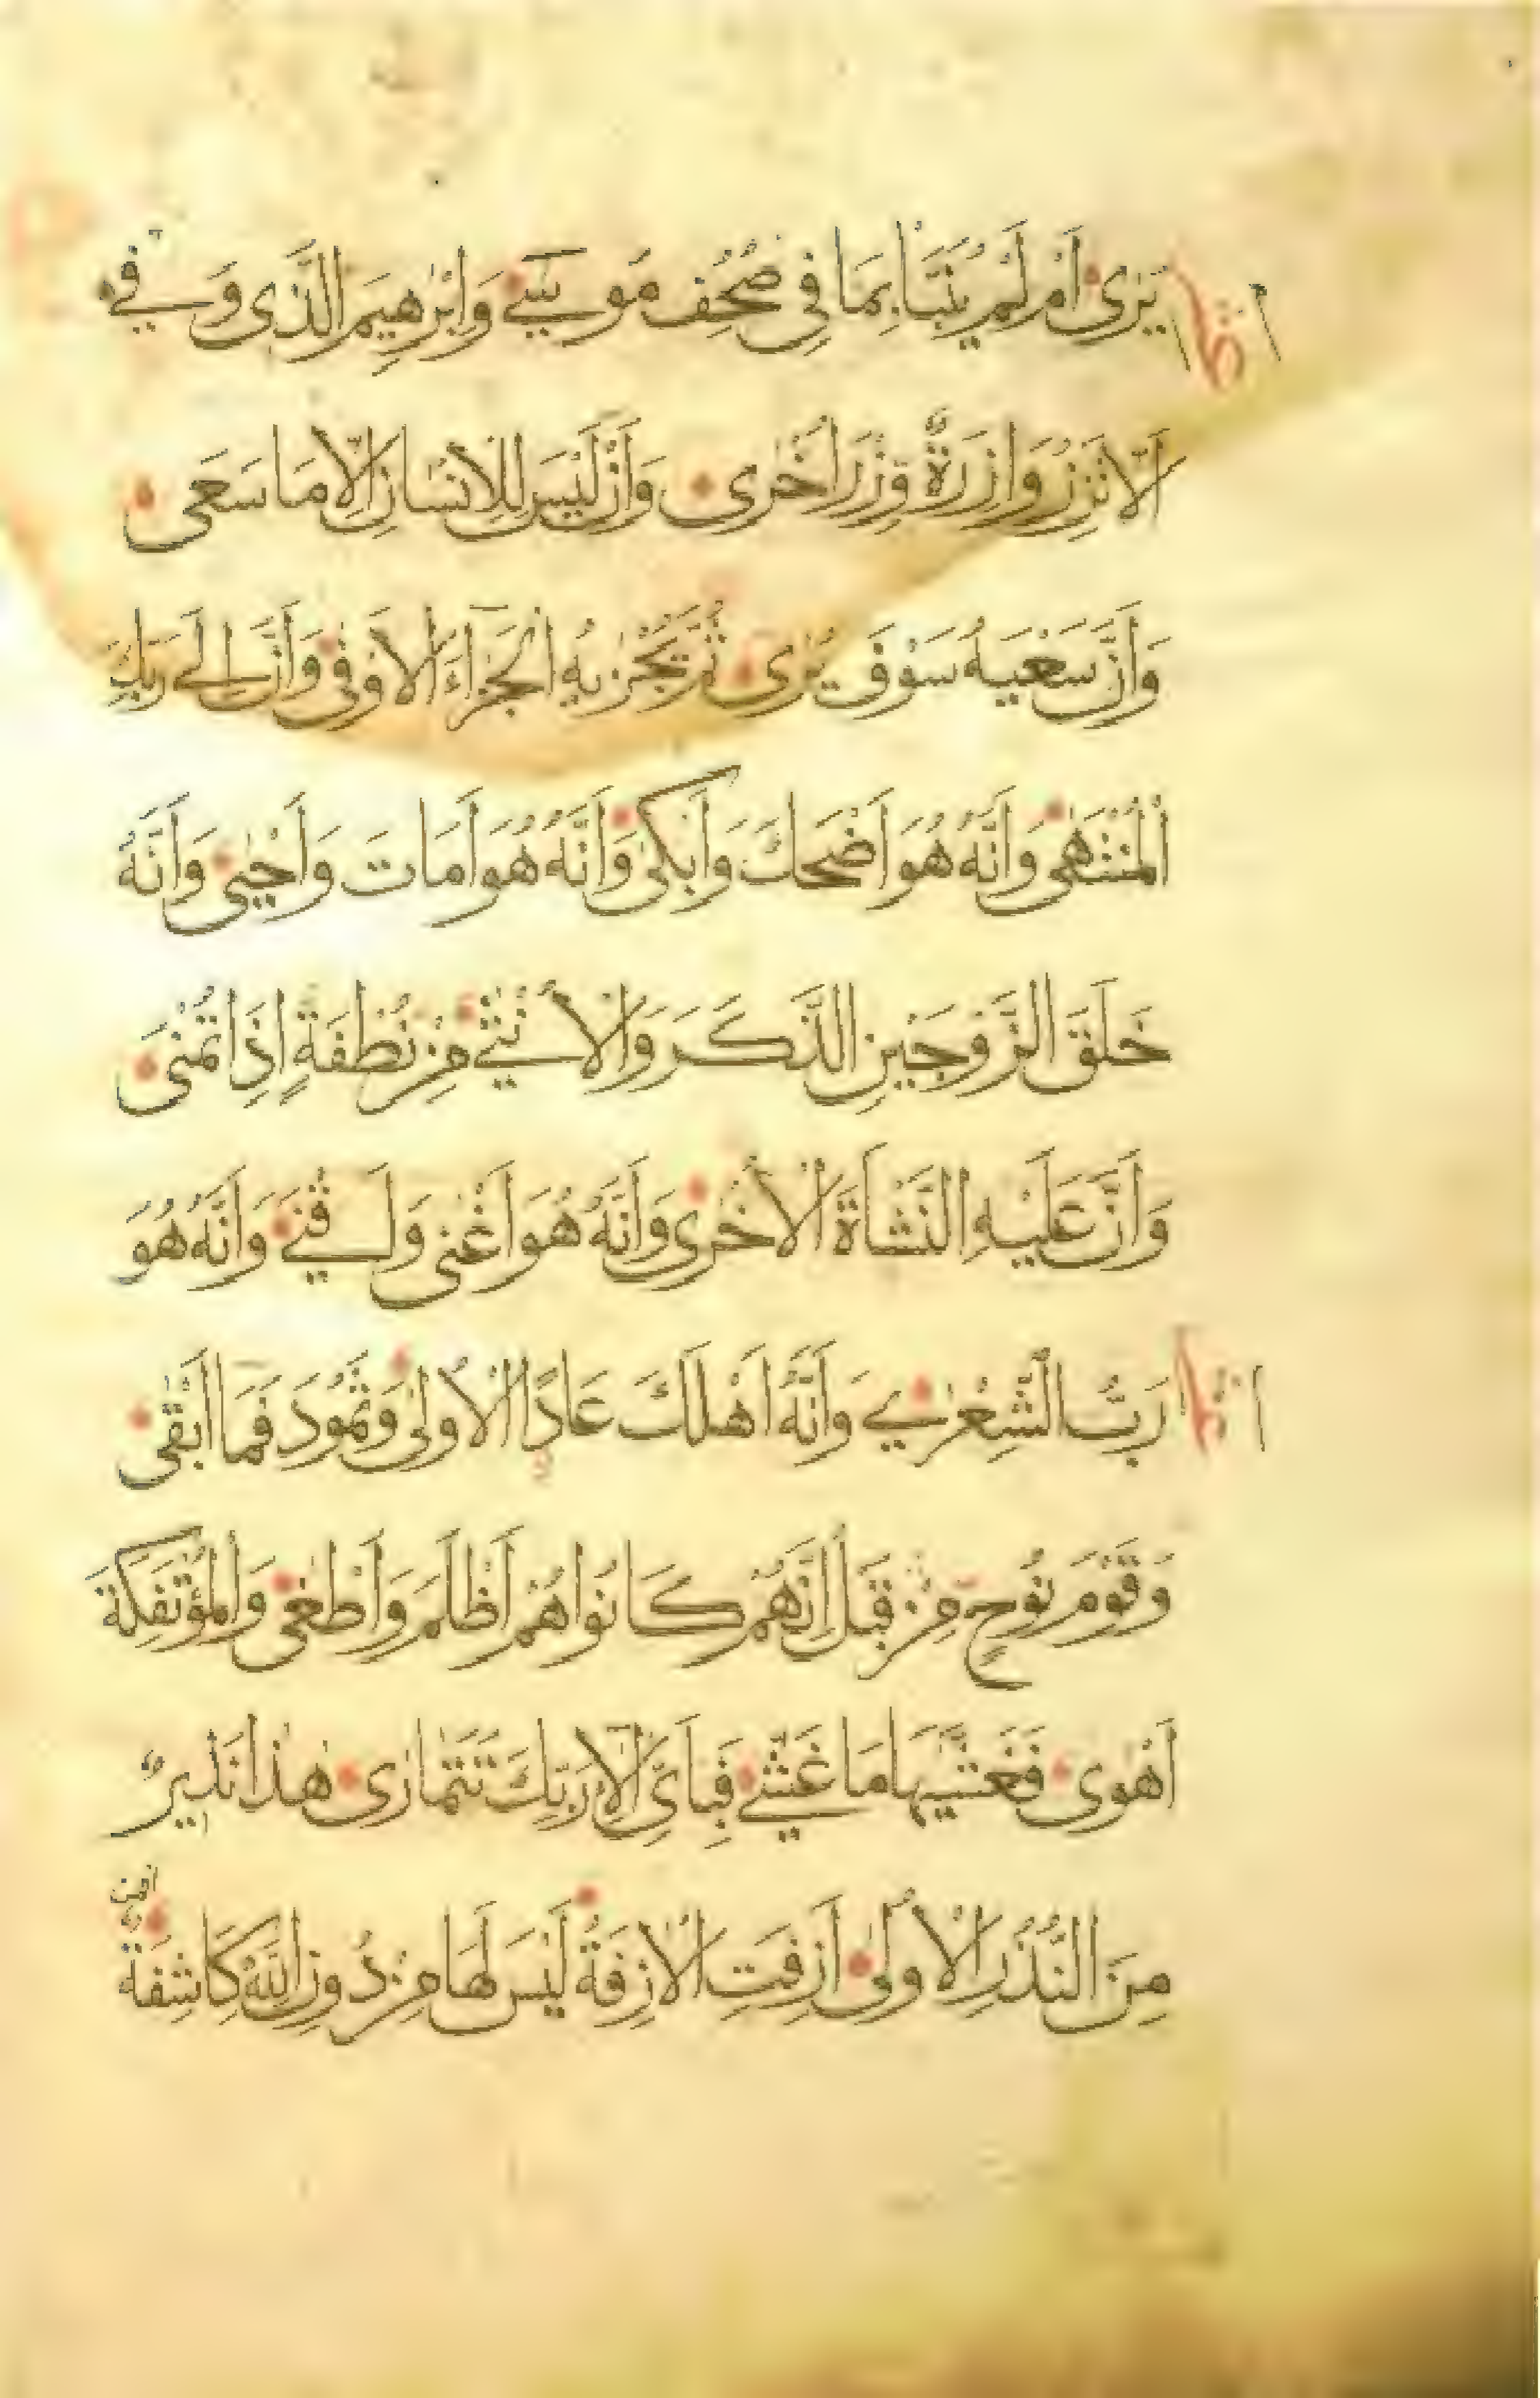 يَرٰى اَمْ لَمْ يُنَبَّاْ بِمَا فِى صُحُفِ مُوسٰى وَاِبْرٰهِيمَ الَّذِى وَفّٰى
اَلَّا تَزِرُ وَازِرَةٌ وِزْرَ اُخْرٰى وَاَنْ لَيْسَ لِلْاِنْسَانِ اِلَّا مَا سَعٰى
وَاَنَّ سَعْيَهُ سَوْفَ يُرٰى ثُمَّ يُجْزٰيهُ الْجَزَٓاءَ الْاَوْفٰى وَاَنَّ اِلٰى رَبِّكَ
الْمُنْتَهٰى وَاَنَّهُ هُوَ اَضْحَكَ وَاَبْكٰى وَاَنَّهُ هُوَ اَمَاتَ وَاَحْيٰى وَاَنَّهُ
خَلَقَ الزَّوْجَيْنِ الذَّكَرَ وَالْاُنْثٰى مِنْ نُطْفَةٍ اِذَا تُمْنٰى
وَاَنَّ عَلَيْهِ النَّشْاَةَ الْاُخْرٰى وَاَنَّهُ هُوَ اَغْنٰى وَاَقْنٰى وَاَنَّهُ هُوَ
رَبُّ الشِّعْرٰى وَاَنَّهُ اَهْلَكَ عَادًا الْاُولٰى وَثَمُودَ فَمَٓا اَبْقٰى
وَقَوْمَ نُوحٍ مِنْ قَبْلُ اِنَّهُمْ كَانُوا هُمْ اَظْلَمَ وَاَطْغٰى وَالْمُؤْتَفِكَةَ
اَهْوٰى فَغَشّٰيهَا مَا غَشّٰى فَبِاَىِّ اٰلَٓاءِ رَبِّكَ تَتَمَارٰى هٰذَا نَذِيرٌ
مِنَ النُّذُرِ الْاُولٰى اَزِفَتِ الْاٰزِفَةُ لَيْسَ لَهَا مِنْ دُونِ اللّٰهِ كَاشِفَةٌ
افمن